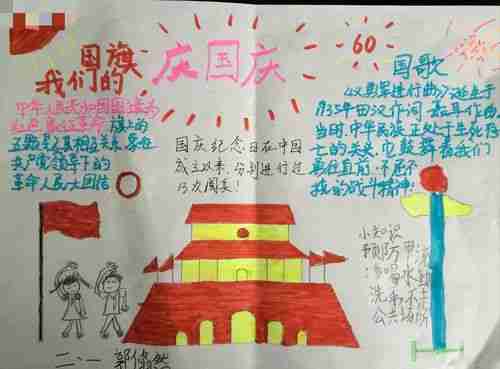 我们的
国旗
庆国庆
60
国歌
中华人民共和国国旗为
红色,象征革命旗上的
五颗星及其相互关系象征
共产党领导下的
革命人民大团结
国庆纪念日在中国
成立以来,分别进行过
13次阅兵!
《义勇军进行曲》诞生于
1935年田汉作词,聂耳作曲
当时,中华民族正处于生死存
亡的关头,它鼓舞着我们
勇往直前,不屈不
挠的战斗精神!
小知识
预防甲流
洗
公共场所
二、1